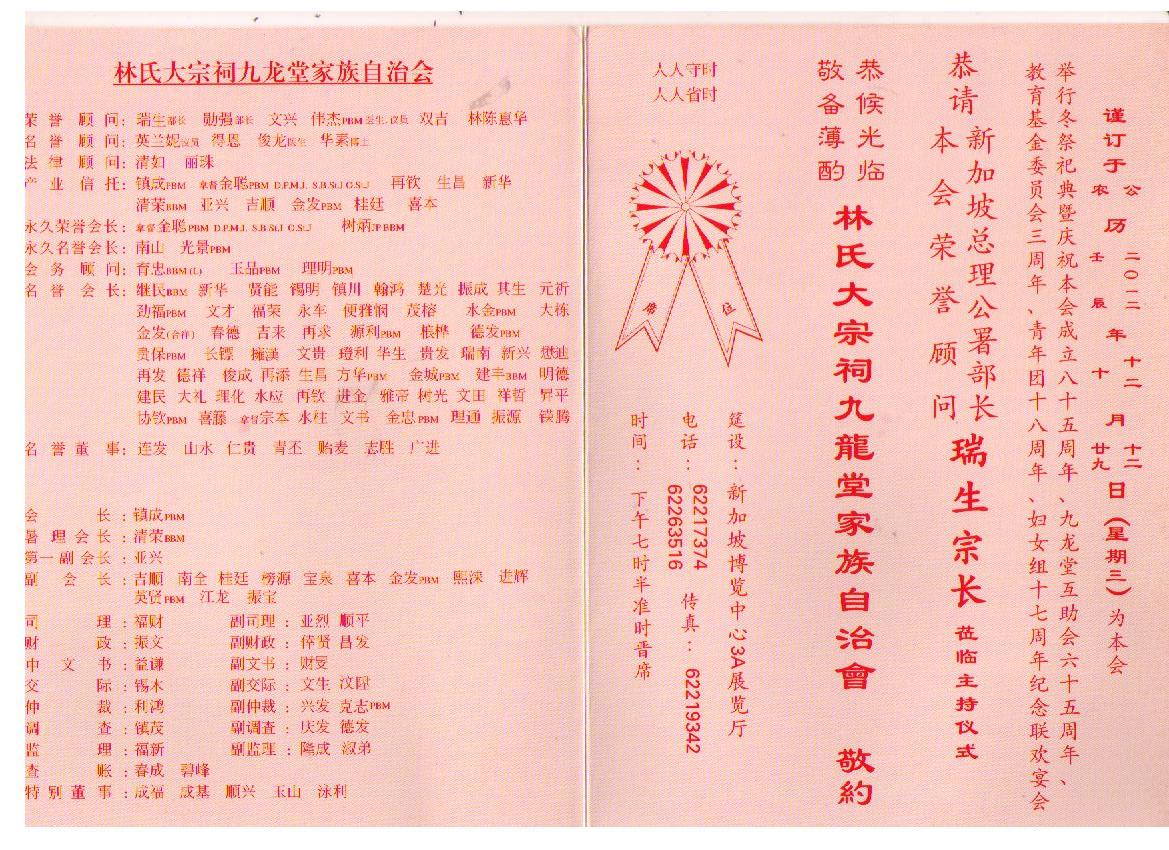 林氏大宗祠九龙堂家族自治会
荣誉顾问：瑞生部长 勋强部长 文兴 伟杰PBM医生.议员 双吉 林陈惠华
名誉顾问：英兰妮议员 得恩 俊龙医生 华素博士
法律顾问：清如 丽珠
产业信托：镇成PBM 拿督金聪PBM D.P.M.J. S.B.St.J O.St.J 再钦 生昌 新华
清荣BBM 亚兴 吉顺 金发PBM 桂廷 喜本
永久荣誉会长：拿督金聪PBM D.P.M.J. S.B.St.J O.St.J 树炳JP BBM
永久名誉会长：南山 光景PBM
会务顾问：育忠BBM (L) 玉品PBM 理明PBM
名誉会长：继民BBM 新华 贤能 锡明 镇川 翰鸿 楚光 振成 其生 元祈
劲福PBM 文才 福荣 永车 便雅悯 茂榕 水金PBM 大栋
金发(合祥) 春德 吉来 再求 源利PBM 根桦 德发PBM
贵保PBM 长镖 擁漢 文贵 瑷利 华生 贵发 瑞南 新兴 懋迪
再发 德祥 俊成 再添 生昌 方华PBM 金城PBM 建丰BBM 明德
建民 大礼 理化 水应 再钦 进金 雅帝 树光 文田 祥哲 昇平
协钦PBM 喜籐 拿督宗本 水柱 文书 金忠PBM 理通 振源 镁腾
名誉董事：连发 山水 仁贵 青丕 贻麦 志胜 广进
会长：镇成PBM
署理会长：清荣BBM
第一副会长：亚兴
副会长：吉顺 南全 桂廷 榜源 宝泉 喜本 金发PBM 熙涞 进辉
英贤PBM 江龙 振宝
司理：福财 副司理：亚烈 顺平
财政：振文 副财政：倖贤 昌发
中文书：益谦 副文书：财旻
交际：锡木 副交际：文生 汶陞
仲裁：利鸿 副仲裁：兴发 克志PBM
调查：镇茂 副调查：庆发 德发
监理：福新 副监理：隆成 淑弟
查账：春成 碧峰
特别董事：成福 成基 顺兴 玉山 泳利
谨订于公历二〇一二年十二月十二日（星期三）为本会
农历壬辰年十月廿九日
举行冬祭祀典暨庆祝本会成立八十五周年、九龙堂互助会六十五周年、
教育基金委员会三周年、青年团十八周年、妇女组十七周年纪念联欢宴会
恭请
新加坡总理公署部长
本会荣誉顾问
瑞生宗长 莅临主持仪式
恭候光临
敬备薄酌
林氏大宗祠九龍堂家族自治會 敬約
人人守时
人人省时
席位
筵设：新加坡博览中心3A展览厅
电话：62217374 传真：62219342
62263516
时间：下午七时半准时晋席